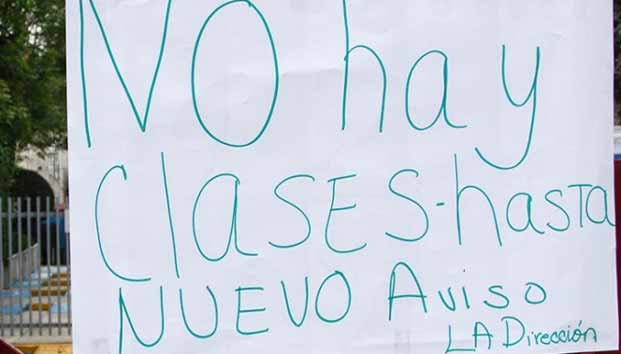 NO hay
ClASES-hasTa
NUEVO Aviso
LA Dirección